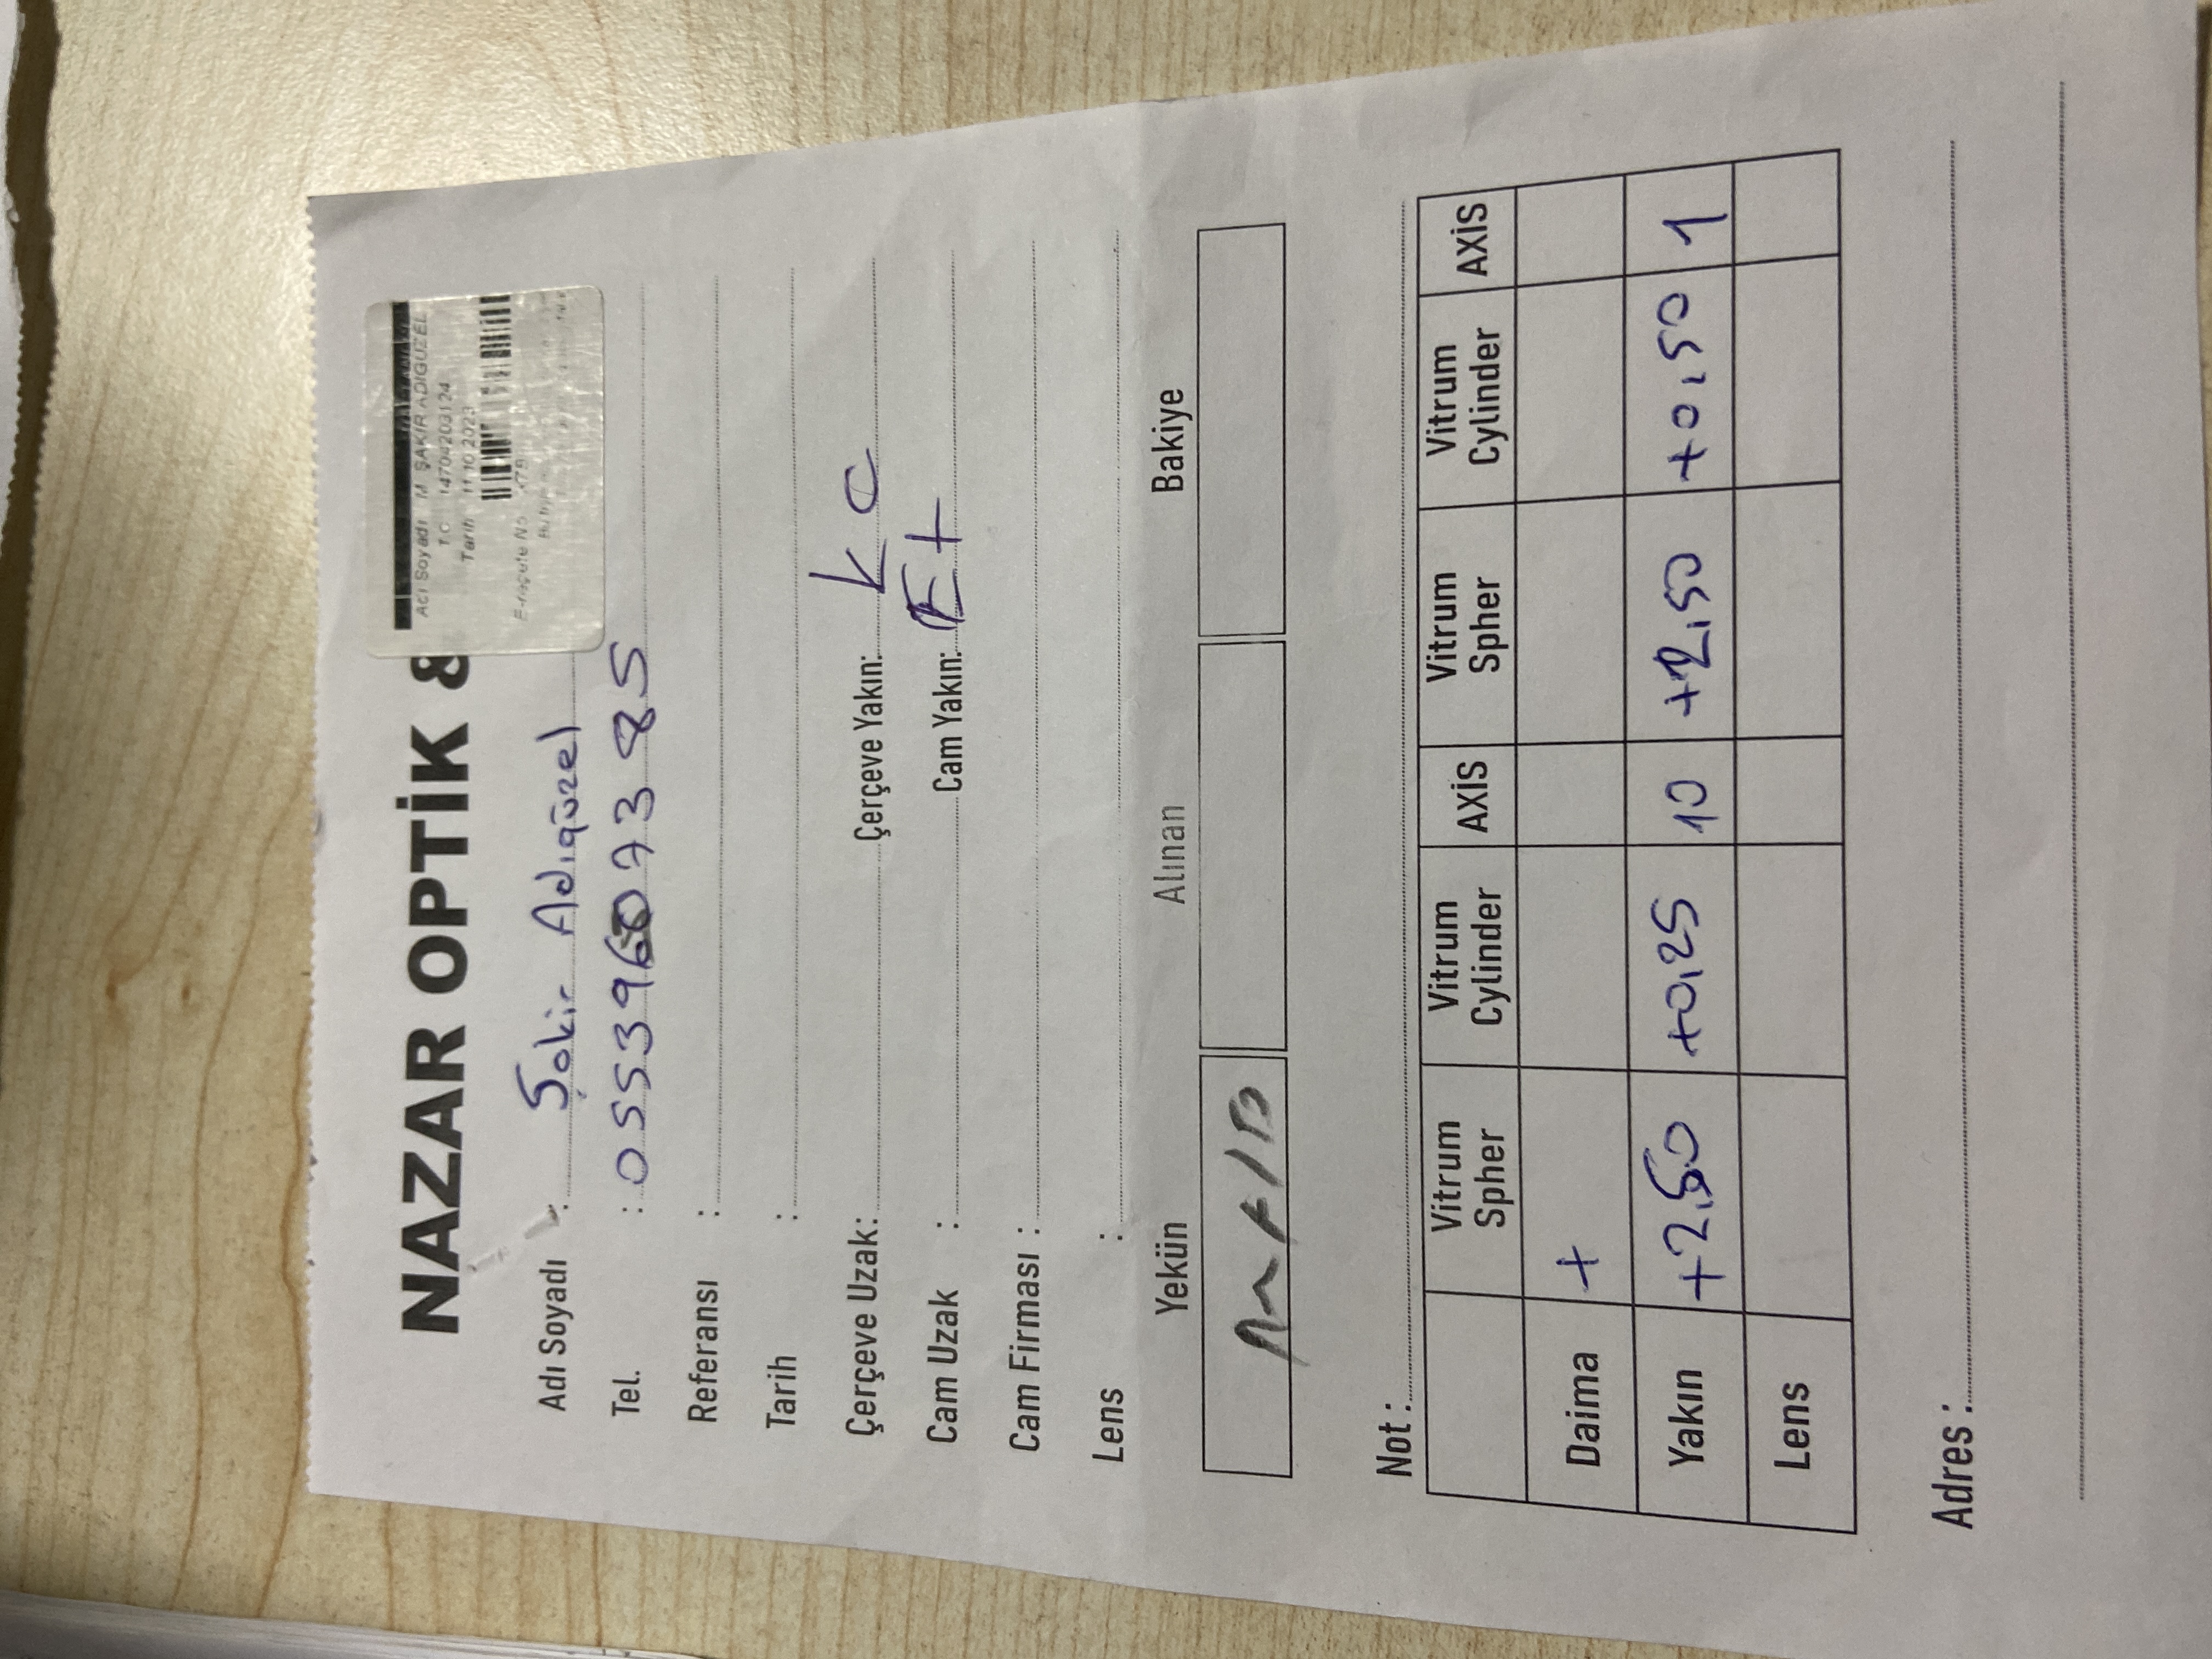 NAZAR OPTİK &
Adı Soyadı M. ŞAKİR ADIGÜZEL
T.C. 14704203124
Tarih 11.10.2023
E-reçete No
Adı Soyadı : Şakir Adıgüzel
Tel. : 05539607385
Referansı :
Tarih :
Çerçeve Uzak: Çerçeve Yakın: LC
Cam Uzak : Cam Yakın: E+
Cam Firması :
Lens :
Yekün Alınan Bakiye
Not :
Vitrum Spher Vitrum Cylinder AXİS Vitrum Spher Vitrum Cylinder AXİS
Daima +
Yakın +2,50 +0,25 10 +2,50 +0,50 1
Lens
Adres :